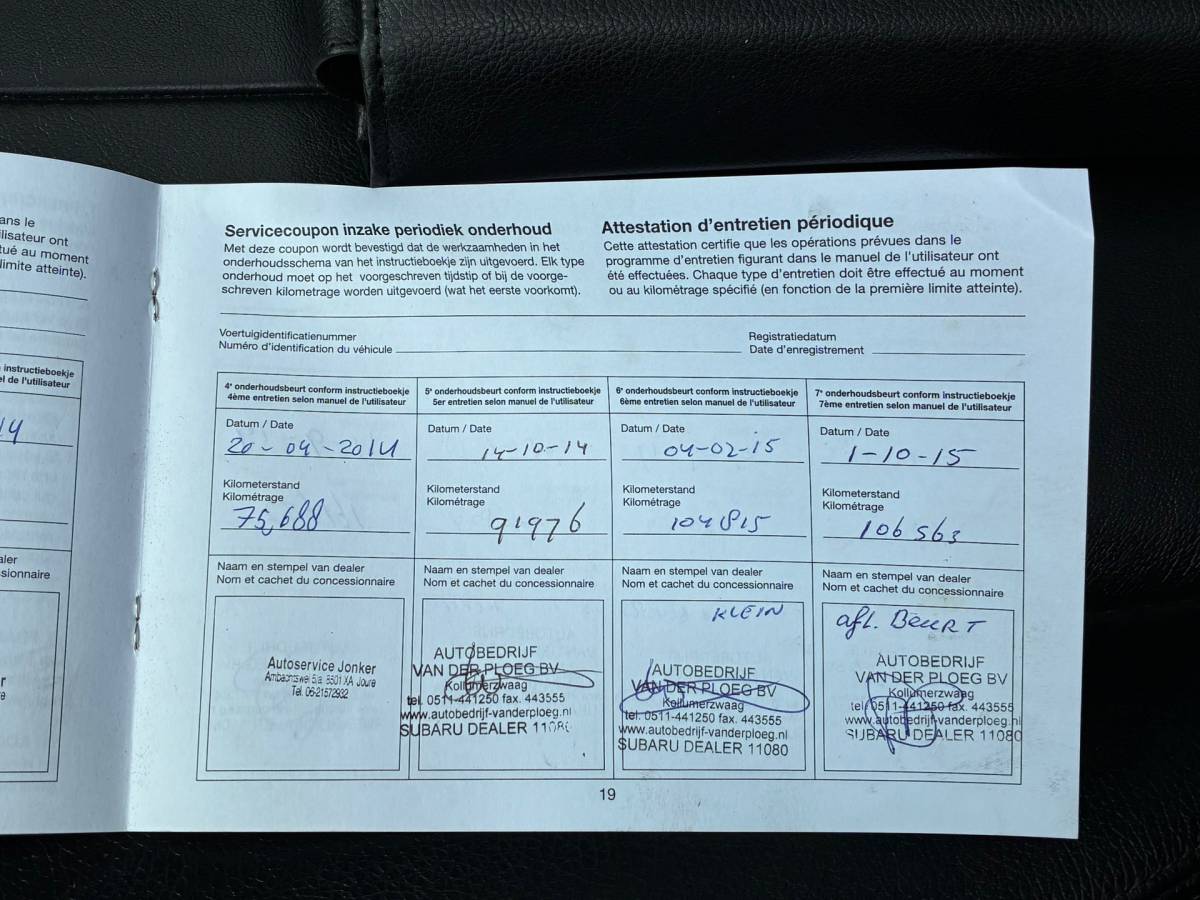 ans le
lisateur ont
tué au moment
limite atteinte).
instructieboekje
el de l'utilisateur
14
aler
sionnaire
Servicecoupon inzake periodiek onderhoud
Met deze coupon wordt bevestigd dat de werkzaamheden in het
onderhoudsschema van het instructieboekje zijn uitgevoerd. Elk type
onderhoud moet op het voorgeschreven tijdstip of bij de voorge-
schreven kilometrage worden uitgevoerd (wat het eerste voorkomt).
Attestation d'entretien périodique
Cette attestation certifie que les opérations prévues dans le
programme d'entretien figurant dans le manuel de l'utilisateur ont
été effectuées. Chaque type d'entretien doit être effectué au moment
ou au kilométrage spécifié (en fonction de la première limite atteinte).
Voertuigidentificatienummer
Numéro d'identification du véhicule
Registratiedatum
Date d'enregistrement
4e onderhoudsbeurt conform instructieboekje
4ème entretien selon manuel de l'utilisateur
Datum / Date
20-04-2014
Kilometerstand
Kilométrage
75,688
Naam en stempel van dealer
Nom et cachet du concessionnaire
Autoservice Jonker
Ambachtswei 5a 8501 XA Joure
Tel. 06-21572932
5e onderhoudsbeurt conform instructieboekje
5er entretien selon manuel de l'utilisateur
Datum / Date
14-10-14
Kilometerstand
Kilométrage
91976
Naam en stempel van dealer
Nom et cachet du concessionnaire
AUTOBEDRIJF
VAN DER PLOEG BV
Kollumerzwaag
tel. 0511-441250 fax. 443555
www.autobedrijf-vanderploeg.nl
SUBARU DEALER 11080
6e onderhoudsbeurt conform instructieboekje
6ème entretien selon manuel de l'utilisateur
Datum / Date
04-02-15
Kilometerstand
Kilométrage
104815
Naam en stempel van dealer
Nom et cachet du concessionnaire
KLEIN
AUTOBEDRIJF
VAN DER PLOEG BV
Kollumerzwaag
tel. 0511-441250 fax. 443555
www.autobedrijf-vanderploeg.nl
SUBARU DEALER 11080
7e onderhoudsbeurt conform instructieboekje
7ème entretien selon manuel de l'utilisateur
Datum / Date
1-10-15
Kilometerstand
Kilométrage
106563
Naam en stempel van dealer
Nom et cachet du concessionnaire
afl. BEURT
AUTOBEDRIJF
VAN DER PLOEG BV
Kollumerzwaag
tel. 0511-441250 fax. 443555
www.autobedrijf-vanderploeg.nl
SUBARU DEALER 11080
19